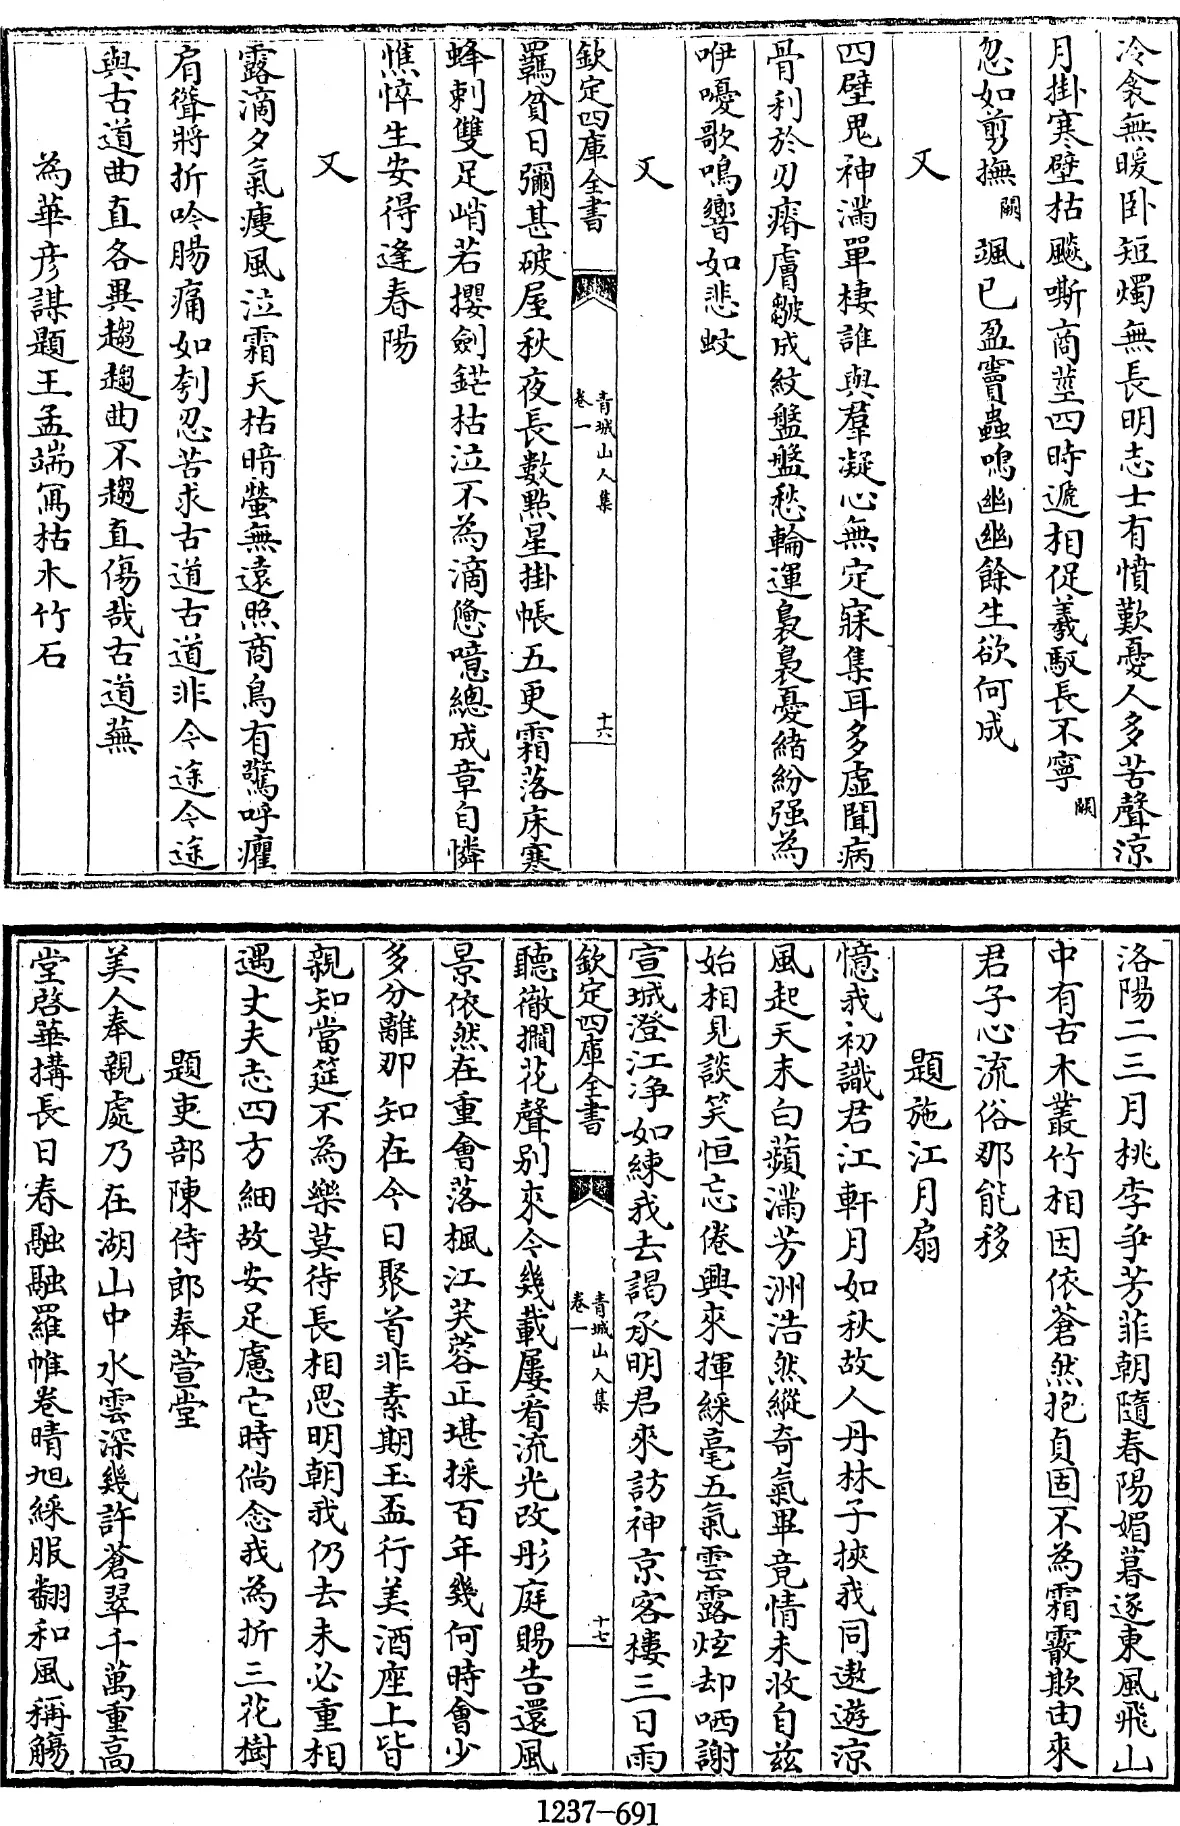 冷衾無暖卧短燭無長明志士有憤歎憂人多苦聲涼
月掛寒壁枯飈嘶商莖四時遞相促羲馭長不寧闕
忽如剪撫闕颯已盈竇蟲鳴幽幽餘生欲何成
又
四壁鬼神滿單棲誰與羣凝心無定寐集耳多虚聞病
骨利於刃瘠膚皺成紋盤盤愁輪運裊裊憂緒紛强為
咿嚘歌鳴響如悲蚊
又
欽定四庫全書
青城山人集
卷一
十六
羈貧日彌甚破屋秋夜長數點星掛帳五更霜落床寒
蜂刺雙足峭若攖劍鋩枯泣不為滴憊噫總成章自憐
憔悴生安得逢春陽
又
露滴夕氣瘦風泣霜天枯暗螢無遠照商鳥有驚呼癯
肩聳將折吟腸痛如刳忍苦求古道古道非今途今途
與古道曲直各異趨趨曲不趨直傷哉古道蕪
為華彦謀題王孟端冩枯木竹石
洛陽二三月桃李爭芳菲朝隨春陽媚暮逐東風飛山
中有古木叢竹相因依蒼然抱貞固不為霜霰欺由來
君子心流俗那能移
題施江月扇
憶我初識君江軒月如秋故人丹林子挾我同遨遊涼
風起天末白蘋滿芳洲浩然縱奇氣畢竟情未收自兹
始相見談笑恒忘倦興來揮綵毫五氣雲露炫却哂謝
宣城澄江净如練我去謁承明君來訪神京客樓三日雨
欽定四庫全書
青城山人集
卷一
十七
聽徹擱花聲别來今幾載屢看流光改彤庭賜告還風
景依然在重會落楓江芙蓉正堪採百年幾何時會少
多分離那知在今日聚首非素期玉盃行美酒座上皆
親知當筵不為樂莫待長相思明朝我仍去未必重相
遇丈夫志四方細故安足慮它時倘念我為折三花樹
題吏部陳侍郎奉萱堂
美人奉親處乃在湖山中水雲深幾許蒼翠千萬重高
堂啓華搆長日春融融羅帷卷晴旭綵服翻和風稱觴
1237-691